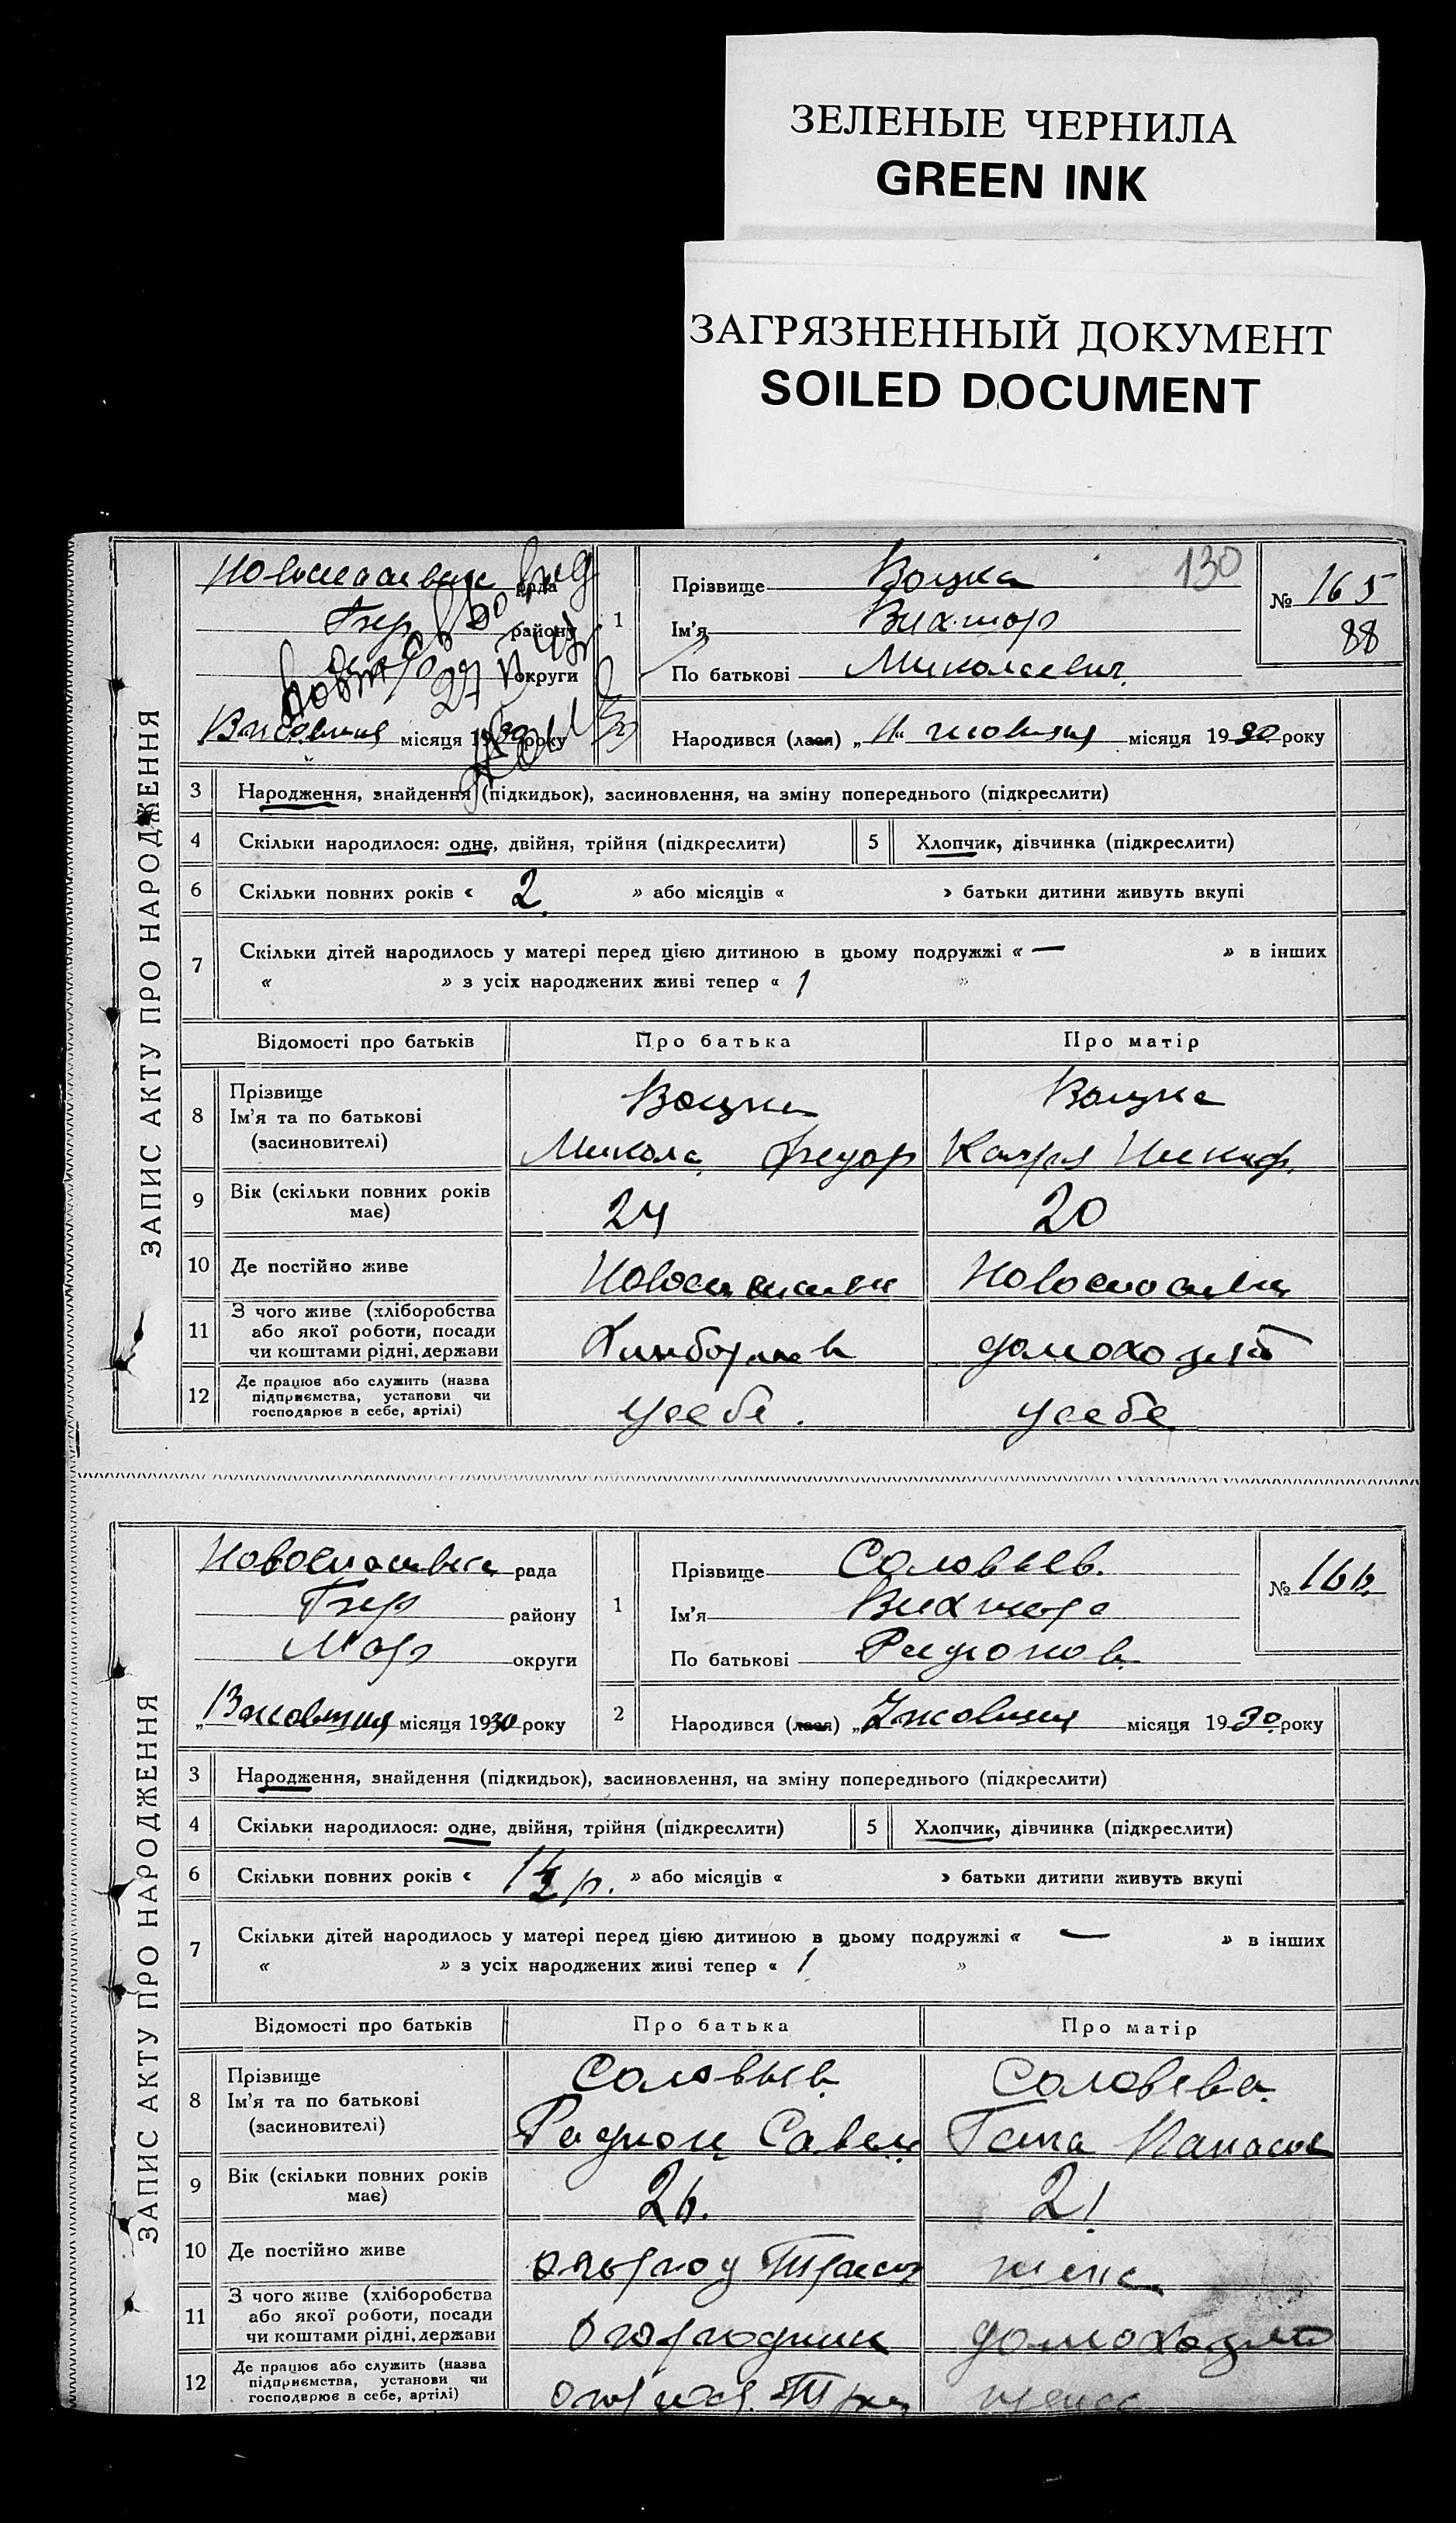 ЗЕЛЕНЫЕ ЧЕРНИЛА
GREEN INK
ЗАГРЯЗНЕННЫЙ ДОКУМЕНТ
SOILED DOCUMENT
130
ЗАПИС АКТУ ПРО НАРОДЖЕННЯ
рада
району
округи
місяця 1930 року
1
Прізвище Воцка
Ім'я Вихтор
По батькові Миколаевич
№ 165
88
Народився (лася) „11" жовтня місяця 1930 року
3 Народження, знайдення (підкидьок), засиновлення, на зміну попереднього (підкреслити)
4 Скільки народилося: одне, двійня, трійня (підкреслити)
5 Хлопчик, дівчинка (підкреслити)
6 Скільки повних років « 2 » або місяців « » батьки дитини живуть вкупі
7 Скільки дітей народилось у матері перед цією дитиною в цьому подружжі « — » в інших
« » з усіх народжених живі тепер « 1 »
Відомості про батьків
Про батька
Про матір
8 Прізвище
Ім'я та по батькові
(засиновителі)
Воцка
Микола Федор
Воцка
9 Вік (скільки повних років
має)
24
20
10 Де постійно живе
Новоспасівки
Новоспасівки
11 З чого живе (хліборобства
або якої роботи, посади
чи коштами рідні, держави
домохозяй
12 Де працює або служить (назва
підприємства, установи чи
господарює в себе, артілі)
усебе.
усебе
ЗАПИС АКТУ ПРО НАРОДЖЕННЯ
Новоспасівка рада
району
Мар округи
„13 жовтня місяця 1930 року
1
Прізвище Соловьев.
Ім'я Вихтор
По батькові Радионов.
№ 166
2
Народився (лася) „2 жовтня місяця 1930 року
3 Народження, знайдення (підкидьок), засиновлення, на зміну попереднього (підкреслити)
4 Скільки народилося: одне, двійня, трійня (підкреслити)
5 Хлопчик, дівчинка (підкреслити)
6 Скільки повних років « 1½ р. » або місяців « » батьки дитини живуть вкупі
7 Скільки дітей народилось у матері перед цією дитиною в цьому подружжі « — » в інших
« » з усіх народжених живі тепер « 1 »
Відомості про батьків
Про батька
Про матір
8 Прізвище
Ім'я та по батькові
(засиновителі)
Соловьев.
Радион Савел
Соловева
Ганна Панасов
9 Вік (скільки повних років
має)
26.
21
10 Де постійно живе
11 З чого живе (хліборобства
або якої роботи, посади
чи коштами рідні, держави
домохозяй
12 Де працює або служить (назва
підприємства, установи чи
господарює в себе, артілі)